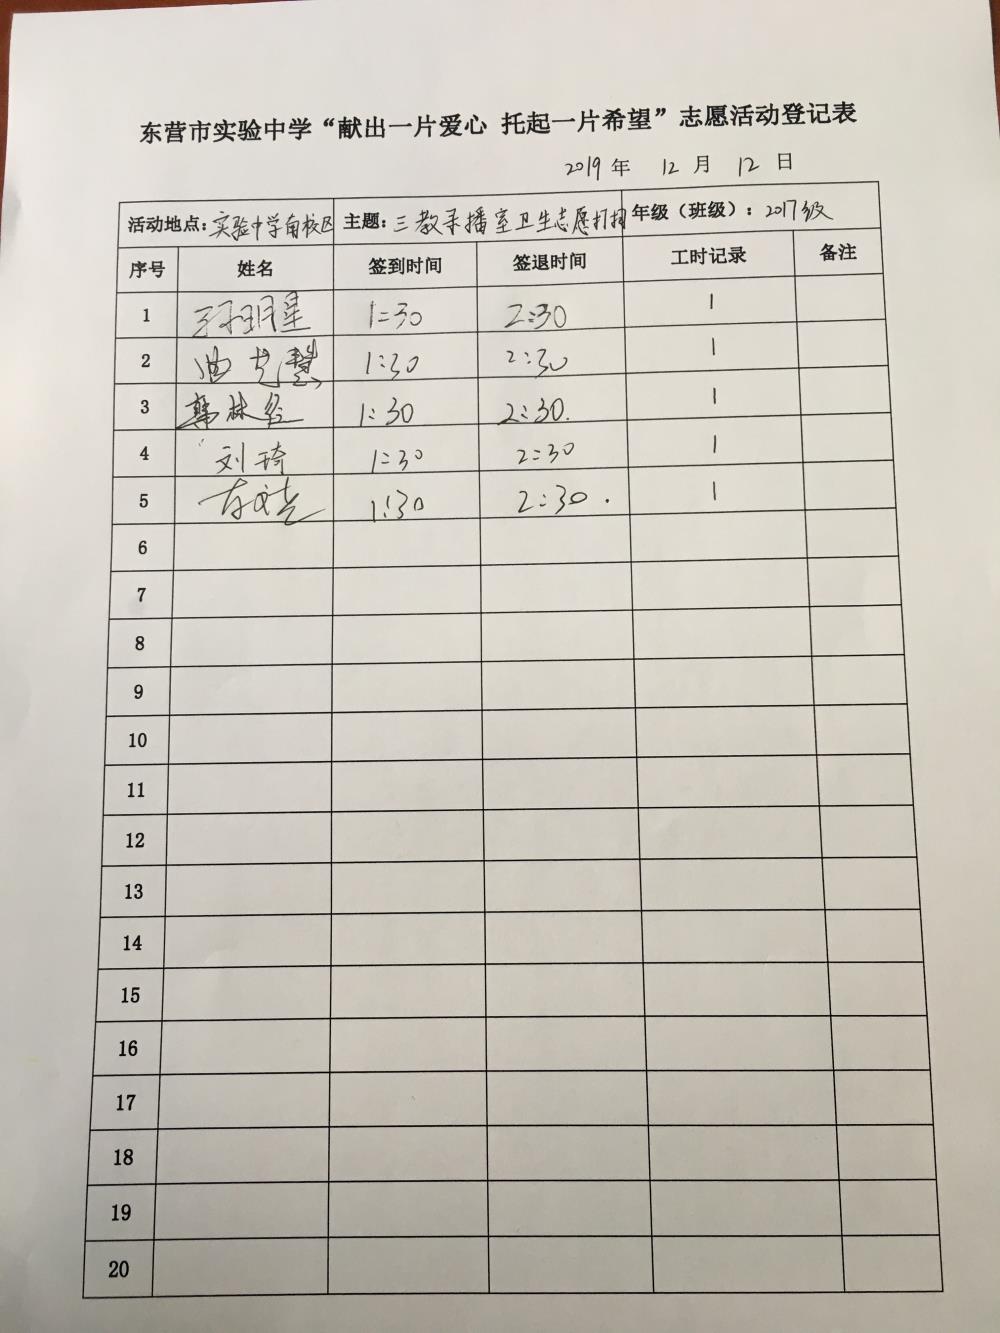 东营市实验中学“献出一片爱心 托起一片希望”志愿活动登记表
2019 年 12 月 12 日
活动地点:实验中学南校区 主题:三教录播室卫生志愿打扫 年级（班级）:2017级
序号 姓名 签到时间 签退时间 工时记录 备注
1 1:30 2:30 1
2 1:30 2:30 1
3 韩林 1:30 2:30. 1
4 刘琦 1:30 2:30 1
5 1:30 2:30. 1
6
7
8
9
10
11
12
13
14
15
16
17
18
19
20